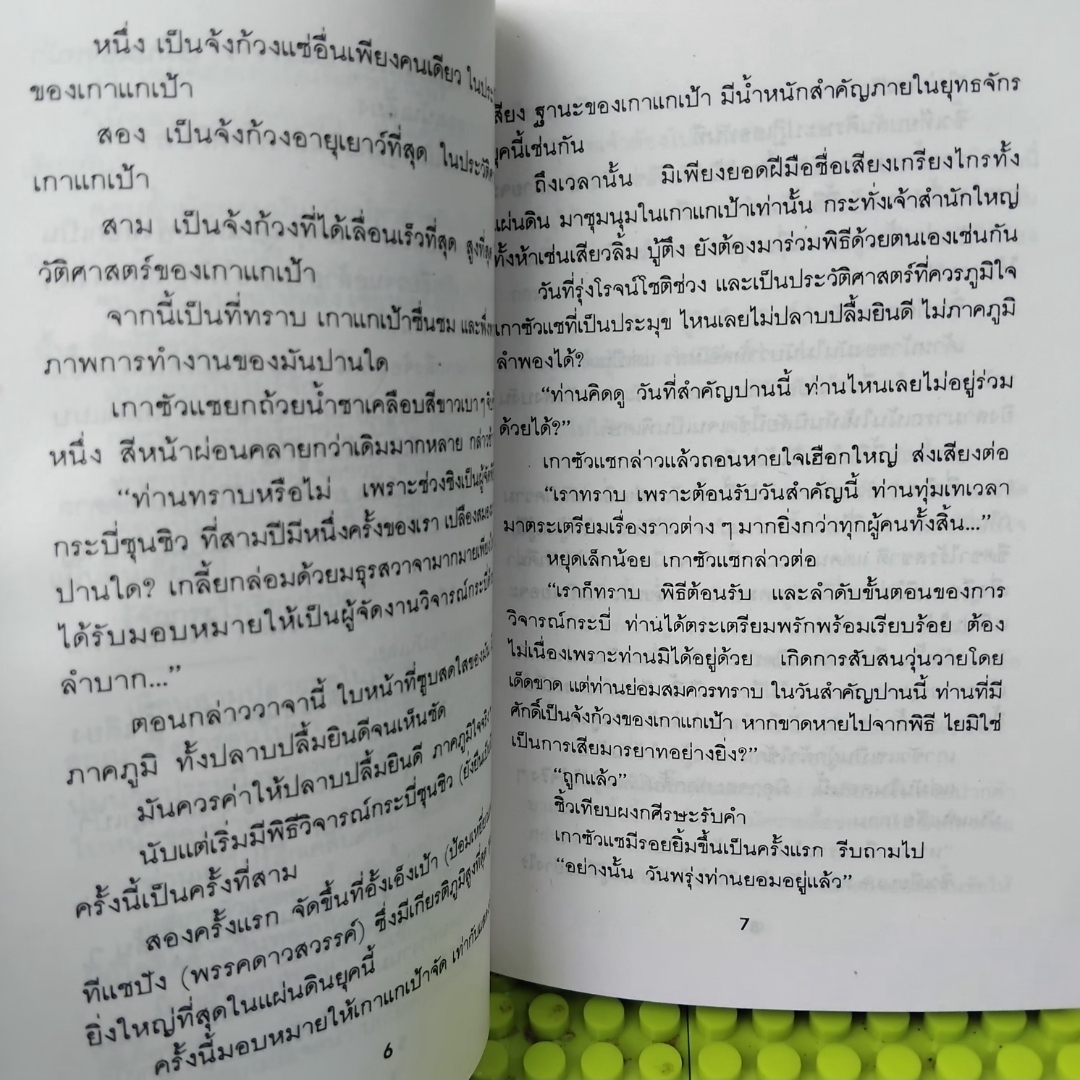 หนึ่ง เป็นจ้งก้วงแซ่อื่นเพียงคนเดียว
ของเกาแกเป้า
สอง เป็นจ้งก้วงอายุเยาว์ที่สุด
เกาแกเป้า
สาม เป็นจ้งก้วงที่ได้เลื่อนเร็วที่สุด
วัติศาสตร์ของเกาแกเป้า
จากนี้เป็นที่ทราบ เกาแกเป้าชื่นชม
ภาพการทำงานของมันปานใด
เกาซัวแซยกถ้วยน้ำชาเคลือบสีขาวเบาๆ
หนึ่ง สีหน้าผ่อนคลายกว่าเดิมมากหลาย
“ท่านทราบหรือไม่ เพราะช่วงชิงเป็น
กระบี่ชุนชิว ที่สามปีมีหนึ่งครั้งของเรา
ปานใด? เกลี้ยกล่อมด้วยมธุรสวาจามากมาย
ได้รับมอบหมายให้เป็นผู้จัดงานวิจารณ์
ลำบาก...”
ตอนกล่าววาจานี้ ใบหน้าที่ซูบสดใสของมัน
ภาคภูมิ ทั้งปลาบปลื้มยินดีจนเห็นชัด
มันควรค่าให้ปลาบปลื้มยินดี
นับแต่เริ่มมีพิธีวิจารณ์กระบี่ชุนชิว
ครั้งนี้เป็นครั้งที่สาม
สองครั้งแรก จัดขึ้นที่อั้งเอ็งเป้า
ทีแซปัง (พรรคดาวสวรรค์) ซึ่งมีเกียรติภูมิสูงที่สุด
ยิ่งใหญ่ที่สุดในแผ่นดินยุคนี้
ครั้งนี้มอบหมายให้เกาแกเป้าจัด
6
สียง ฐานะของเกาแกเป้า มีน้ำหนักสำคัญภายในยุทธจักร
ยุคนี้เช่นกัน
ถึงเวลานั้น มิเพียงยอดฝีมือชื่อเสียงเกรียงไกรทั้ง
แผ่นดิน มาชุมนุมในเกาแกเป้าเท่านั้น กระทั่งเจ้าสำนักใหญ่
ทั้งห้าเช่นเสียวลิ้ม บู๊ตึง ยังต้องมาร่วมพิธีด้วยตนเองเช่นกัน
วันที่รุ่งโรจน์โชติช่วง และเป็นประวัติศาสตร์ที่ควรภูมิใจ
เกาซัวแซที่เป็นประมุข ไหนเลยไม่ปลาบปลื้มยินดี ไม่ภาคภูมิ
ลำพองได้?
“ท่านคิดดู วันที่สำคัญปานนี้ ท่านไหนเลยไม่อยู่ร่วม
ด้วยได้?”
เกาซัวแซกล่าวแล้วถอนหายใจเฮือกใหญ่ ส่งเสียงต่อ
“เราทราบ เพราะต้อนรับวันสำคัญนี้ ท่านทุ่มเทเวลา
มาตระเตรียมเรื่องราวต่าง ๆ มากยิ่งกว่าทุกผู้คนทั้งสิ้น...”
หยุดเล็กน้อย เกาซัวแซกล่าวต่อ
“เราก็ทราบ พิธีต้อนรับ และลำดับขั้นตอนของการ
วิจารณ์กระบี่ ท่านได้ตระเตรียมพรักพร้อมเรียบร้อย ต้อง
ไม่เนื่องเพราะท่านมิได้อยู่ด้วย เกิดการสับสนวุ่นวายโดย
เด็ดขาด แต่ท่านย่อมสมควรทราบ ในวันสำคัญปานนี้ ท่านที่มี
ศักดิ์เป็นจ้งก้วงของเกาแกเป้า หากขาดหายไปจากพิธี ไยมิใช่
เป็นการเสียมารยาทอย่างยิ่ง?”
“ถูกแล้ว”
ซิ้วเทียบผงกศีรษะรับคำ
เกาซัวแซมีรอยยิ้มขึ้นเป็นครั้งแรก รีบถามไป
“อย่างนั้น วันพรุ่งท่านยอมอยู่แล้ว”
7